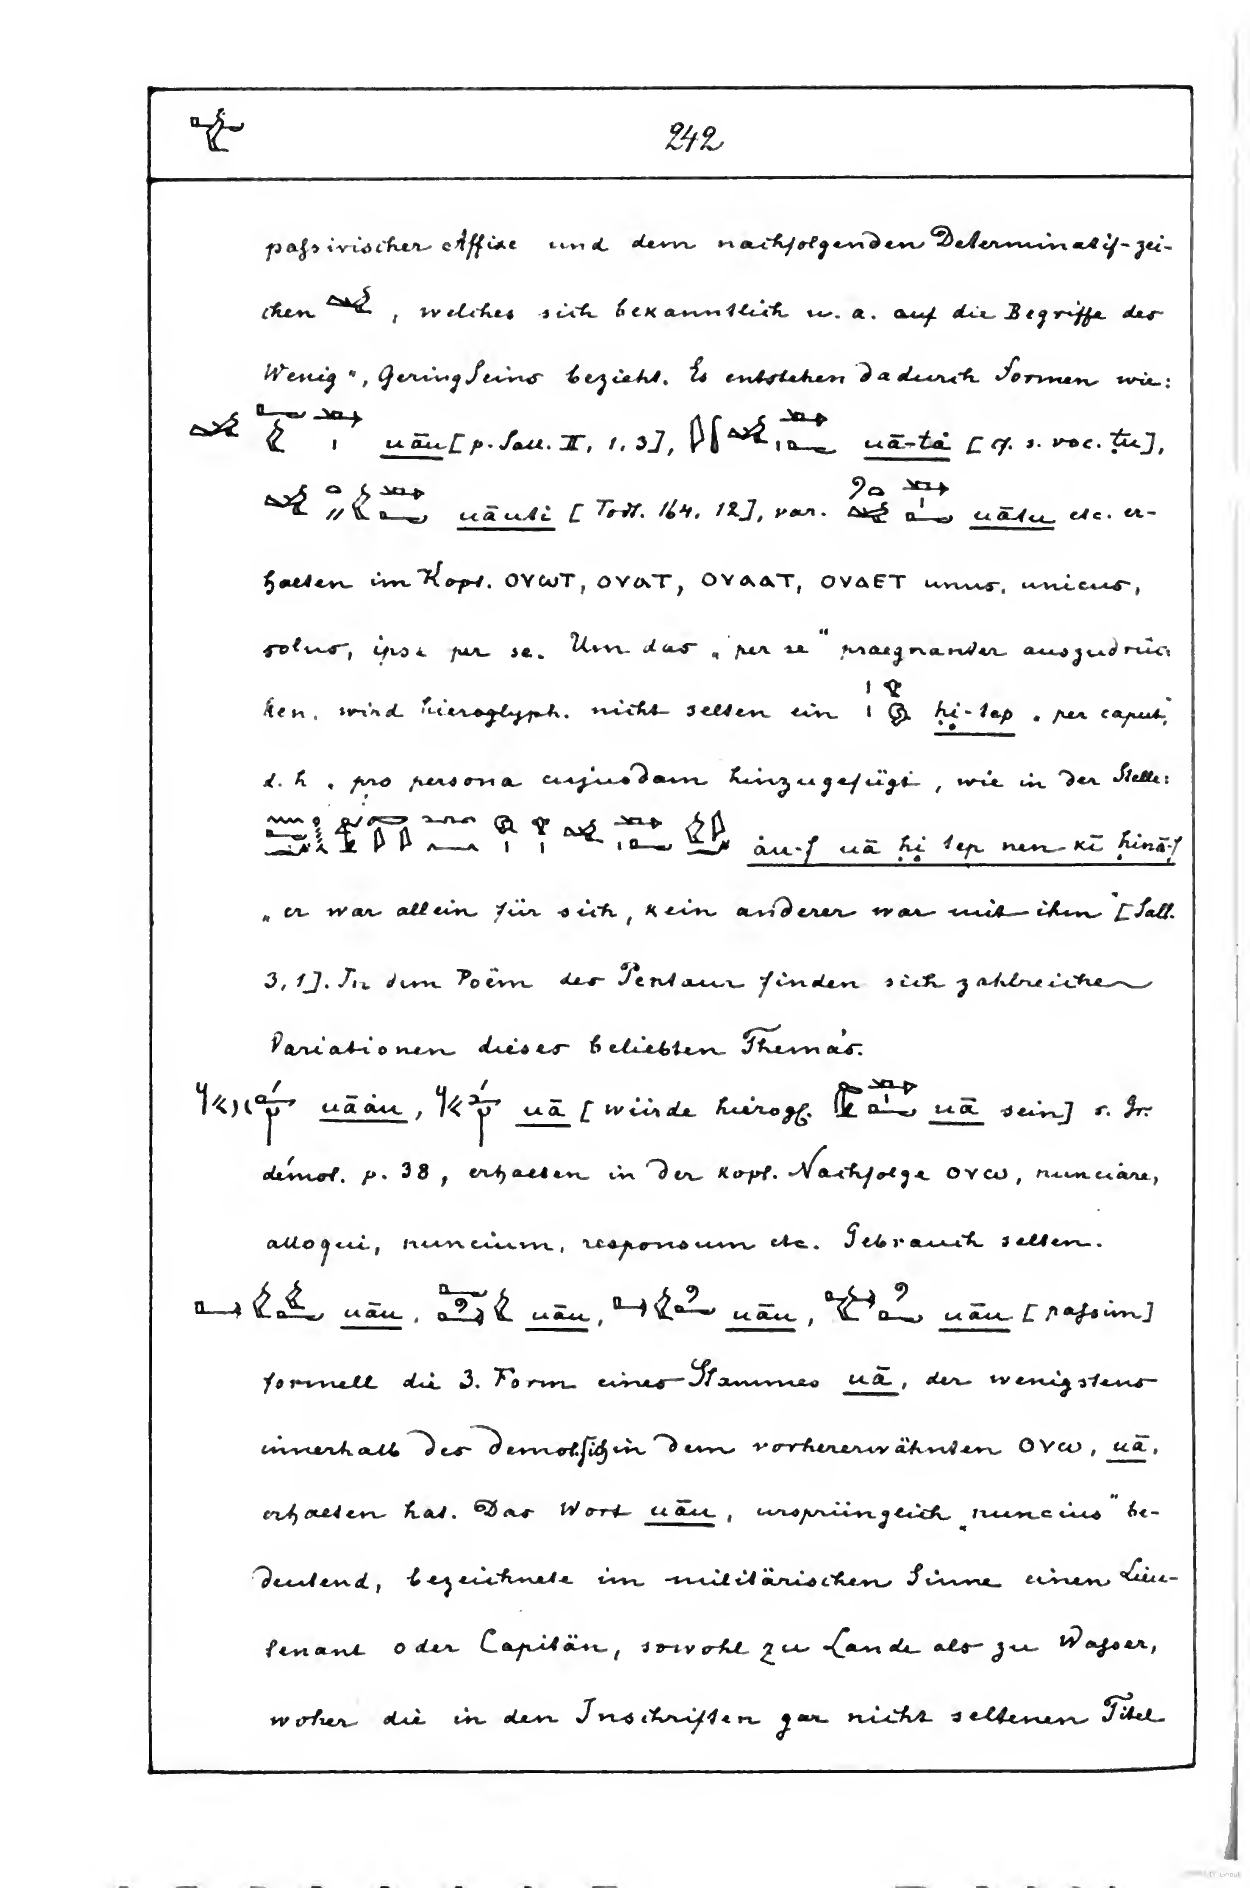 242
paſsivischer Affixe und dem nachfolgenden Determinatif-zei-
chen , welches sich bekanntlich u. a. auf die Begriffe des
Wenig", Gering Seins bezieht. Es entstehen dadurch Formen wie:
uāu [p. Sall. II, 1, 3], uā-tȧ [cf. s. voc. ṭu],
uāuti [Todt. 164, 12], var. uātu etc. er-
halten im Kopt. ⲟⲩⲱⲧ, ⲟⲩⲁⲧ, ⲟⲩⲁⲁⲧ, ⲟⲩⲁⲉⲧ unus, unicus,
solus, ipse per se. Um das „per se" praegnanter auszudrüc-
ken, wird hieroglyph. nicht selten ein ḥi-tep „per caput",
d. h. pro persona cujusdam hinzugefügt, wie in der Stelle:
ȧu-f uā ḥi tep nen-kī ḥinā-f
„er war allein für sich, kein anderer war mit ihm" [Sall.
3, 1]. In dem Poëm des Pentaur finden sich zahlreiche
Variationen dieses beliebten Thema's.
uāȧu, uā [würde hierogl. uā sein] s. Gr.
démot. p. 38, erhalten in der kopt. Nachfolge ⲟⲩⲱ, nunciare,
alloqui, nuncium, responsum etc. Gebrauch selten.
uāu, uāu, uāu, uāu [paſsim]
formell die 3. Form eines Stammes uā, der wenigstens
innerhalb des demotischen in dem vorhererwähnten ⲟⲩⲱ, uā,
erhalten hat. Das Wort uāu, ursprünglich „nuncius" be-
deutend, bezeichnete im militärischen Sinne einen Lieu-
tenant oder Capitän, sowohl zu Lande als zu Waſser,
woher die in den Inschriften gar nicht seltenen Titel